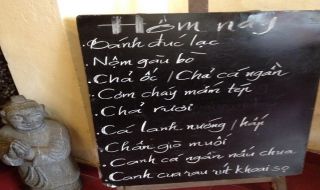 Hôm nay
. Bánh đúc lạc
. Nộm gàu bò
. Chả ốc / Chả cá ngần
. Cơm cháy mắm tép
. Chả rươi
. Cá lanh nướng / hấp
. Chân giò muối
. Canh cá ngần nấu chua
. Canh cua rau rút khoai sọ